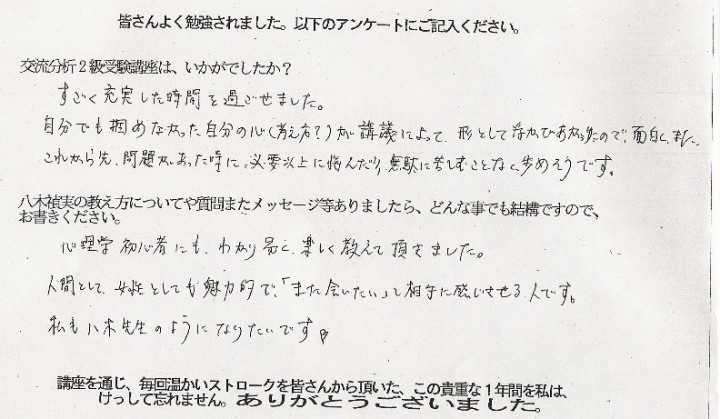 皆さんよく勉強されました。以下のアンケートにご記入ください。
交流分析2級受験講座は、いかがでしたか?
すごく充実した時間を過ごせました。
自分でも掴めなかった自分の心(考え方?)が講議によって、形として浮かびあがったので、面白く、また、
これから先、問題があった時に、必要以上に悩んだり、無駄に苦しむことなく歩めそうです。
八木禎実の教え方についてや質問またメッセージ等ありましたら、どんな事でも結構ですので、
お書きください。
心理学初心者にも、わかり易く、楽しく教えて頂きました。
人間として、女性としても魅力的で、「また会いたい」と相手に感じさせる人です。
私も八木先生のようになりたいです
講座を通じ、毎回温かいストロークを皆さんから頂いた、この貴重な1年間を私は、
けっして忘れません。ありがとうございました。